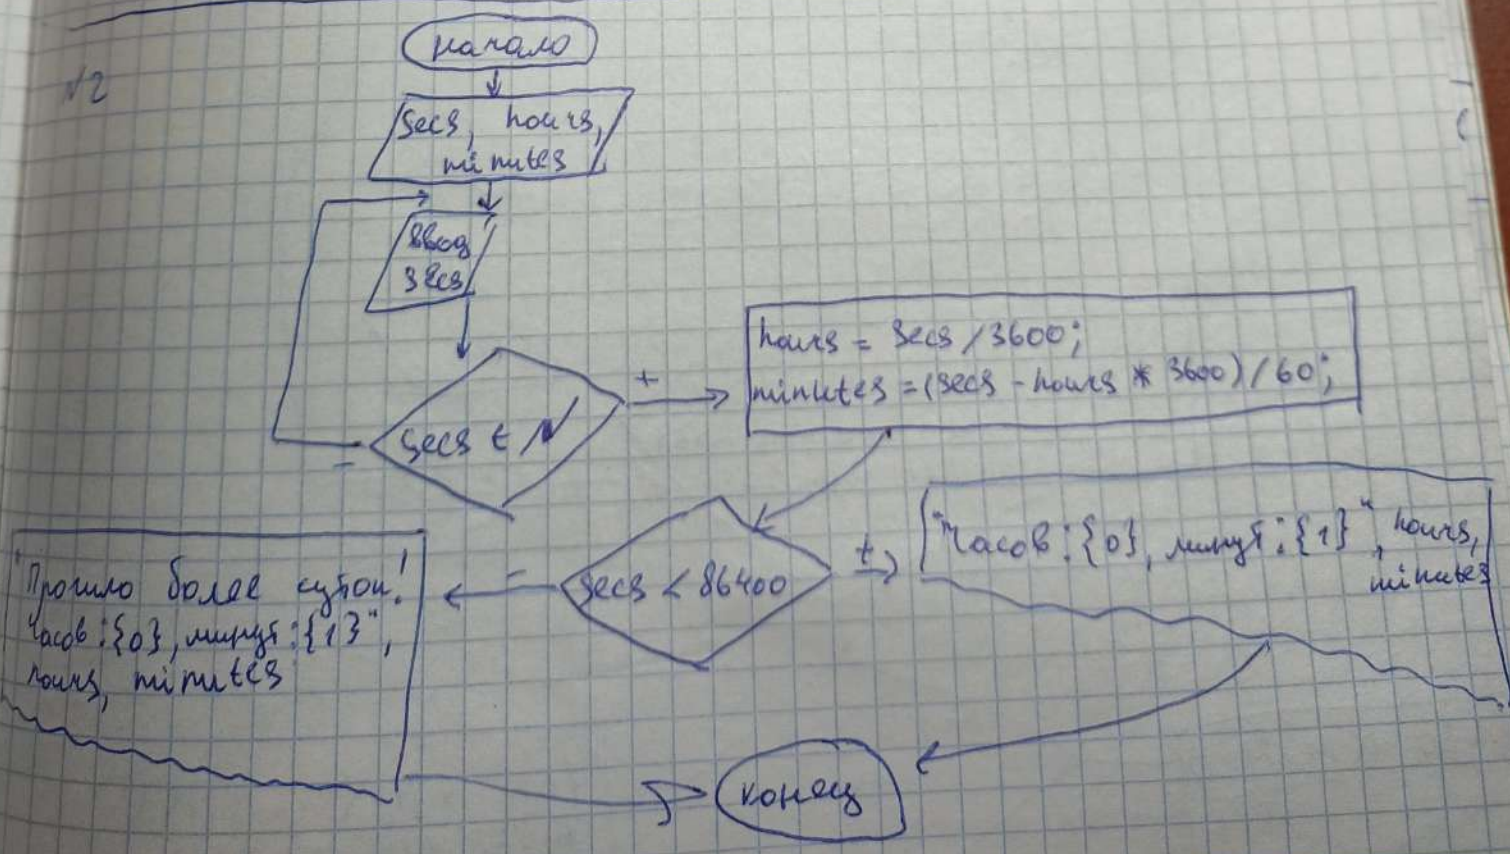 N2
начало
secs, hours,
minutes
Ввод
secs
secs ∈ N
+
-
hours = secs / 3600;
minutes = (secs - hours * 3600) / 60;
secs < 86400
+
-
"Часов: {0}, минут: {1}", hours,
minutes
"Прошло более суток!
Часов: {0}, минут: {1}",
hours, minutes
конец